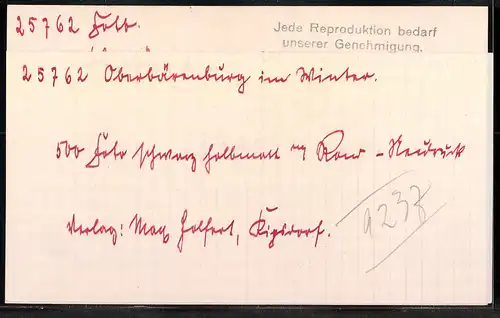 25762 Foto.
Jede Reproduktion bedarf
unserer Genehmigung.
25762 Oberbärenburg im Winter.
500 Foto schwarz halbmatt m Rand - Neudruck
Verlag: Max Helfert, Kipsdorf.